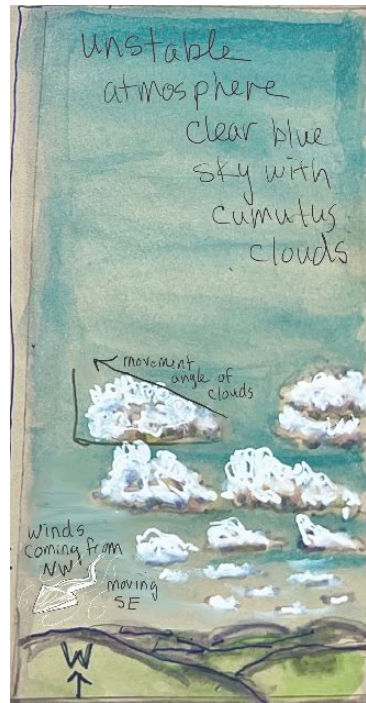 unstable
atmosphere
clear blue
sky with
cumutus
clouds
movement
angle of
clouds
winds
coming from
NW
moving
SE
W